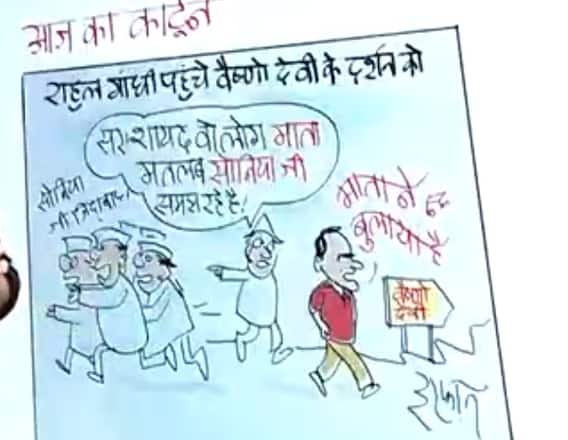 आज का कार्टून
राहुल गांधी पहुंचे वैष्णो देवी के दर्शन को
सर शायद वो लोग माता
मतलब सोनिया जी
समझ रहे हैं!
सोनिया
जी जिंदाबाद
माता ने
बुलाया है
वैष्णो
देवी
इरफान